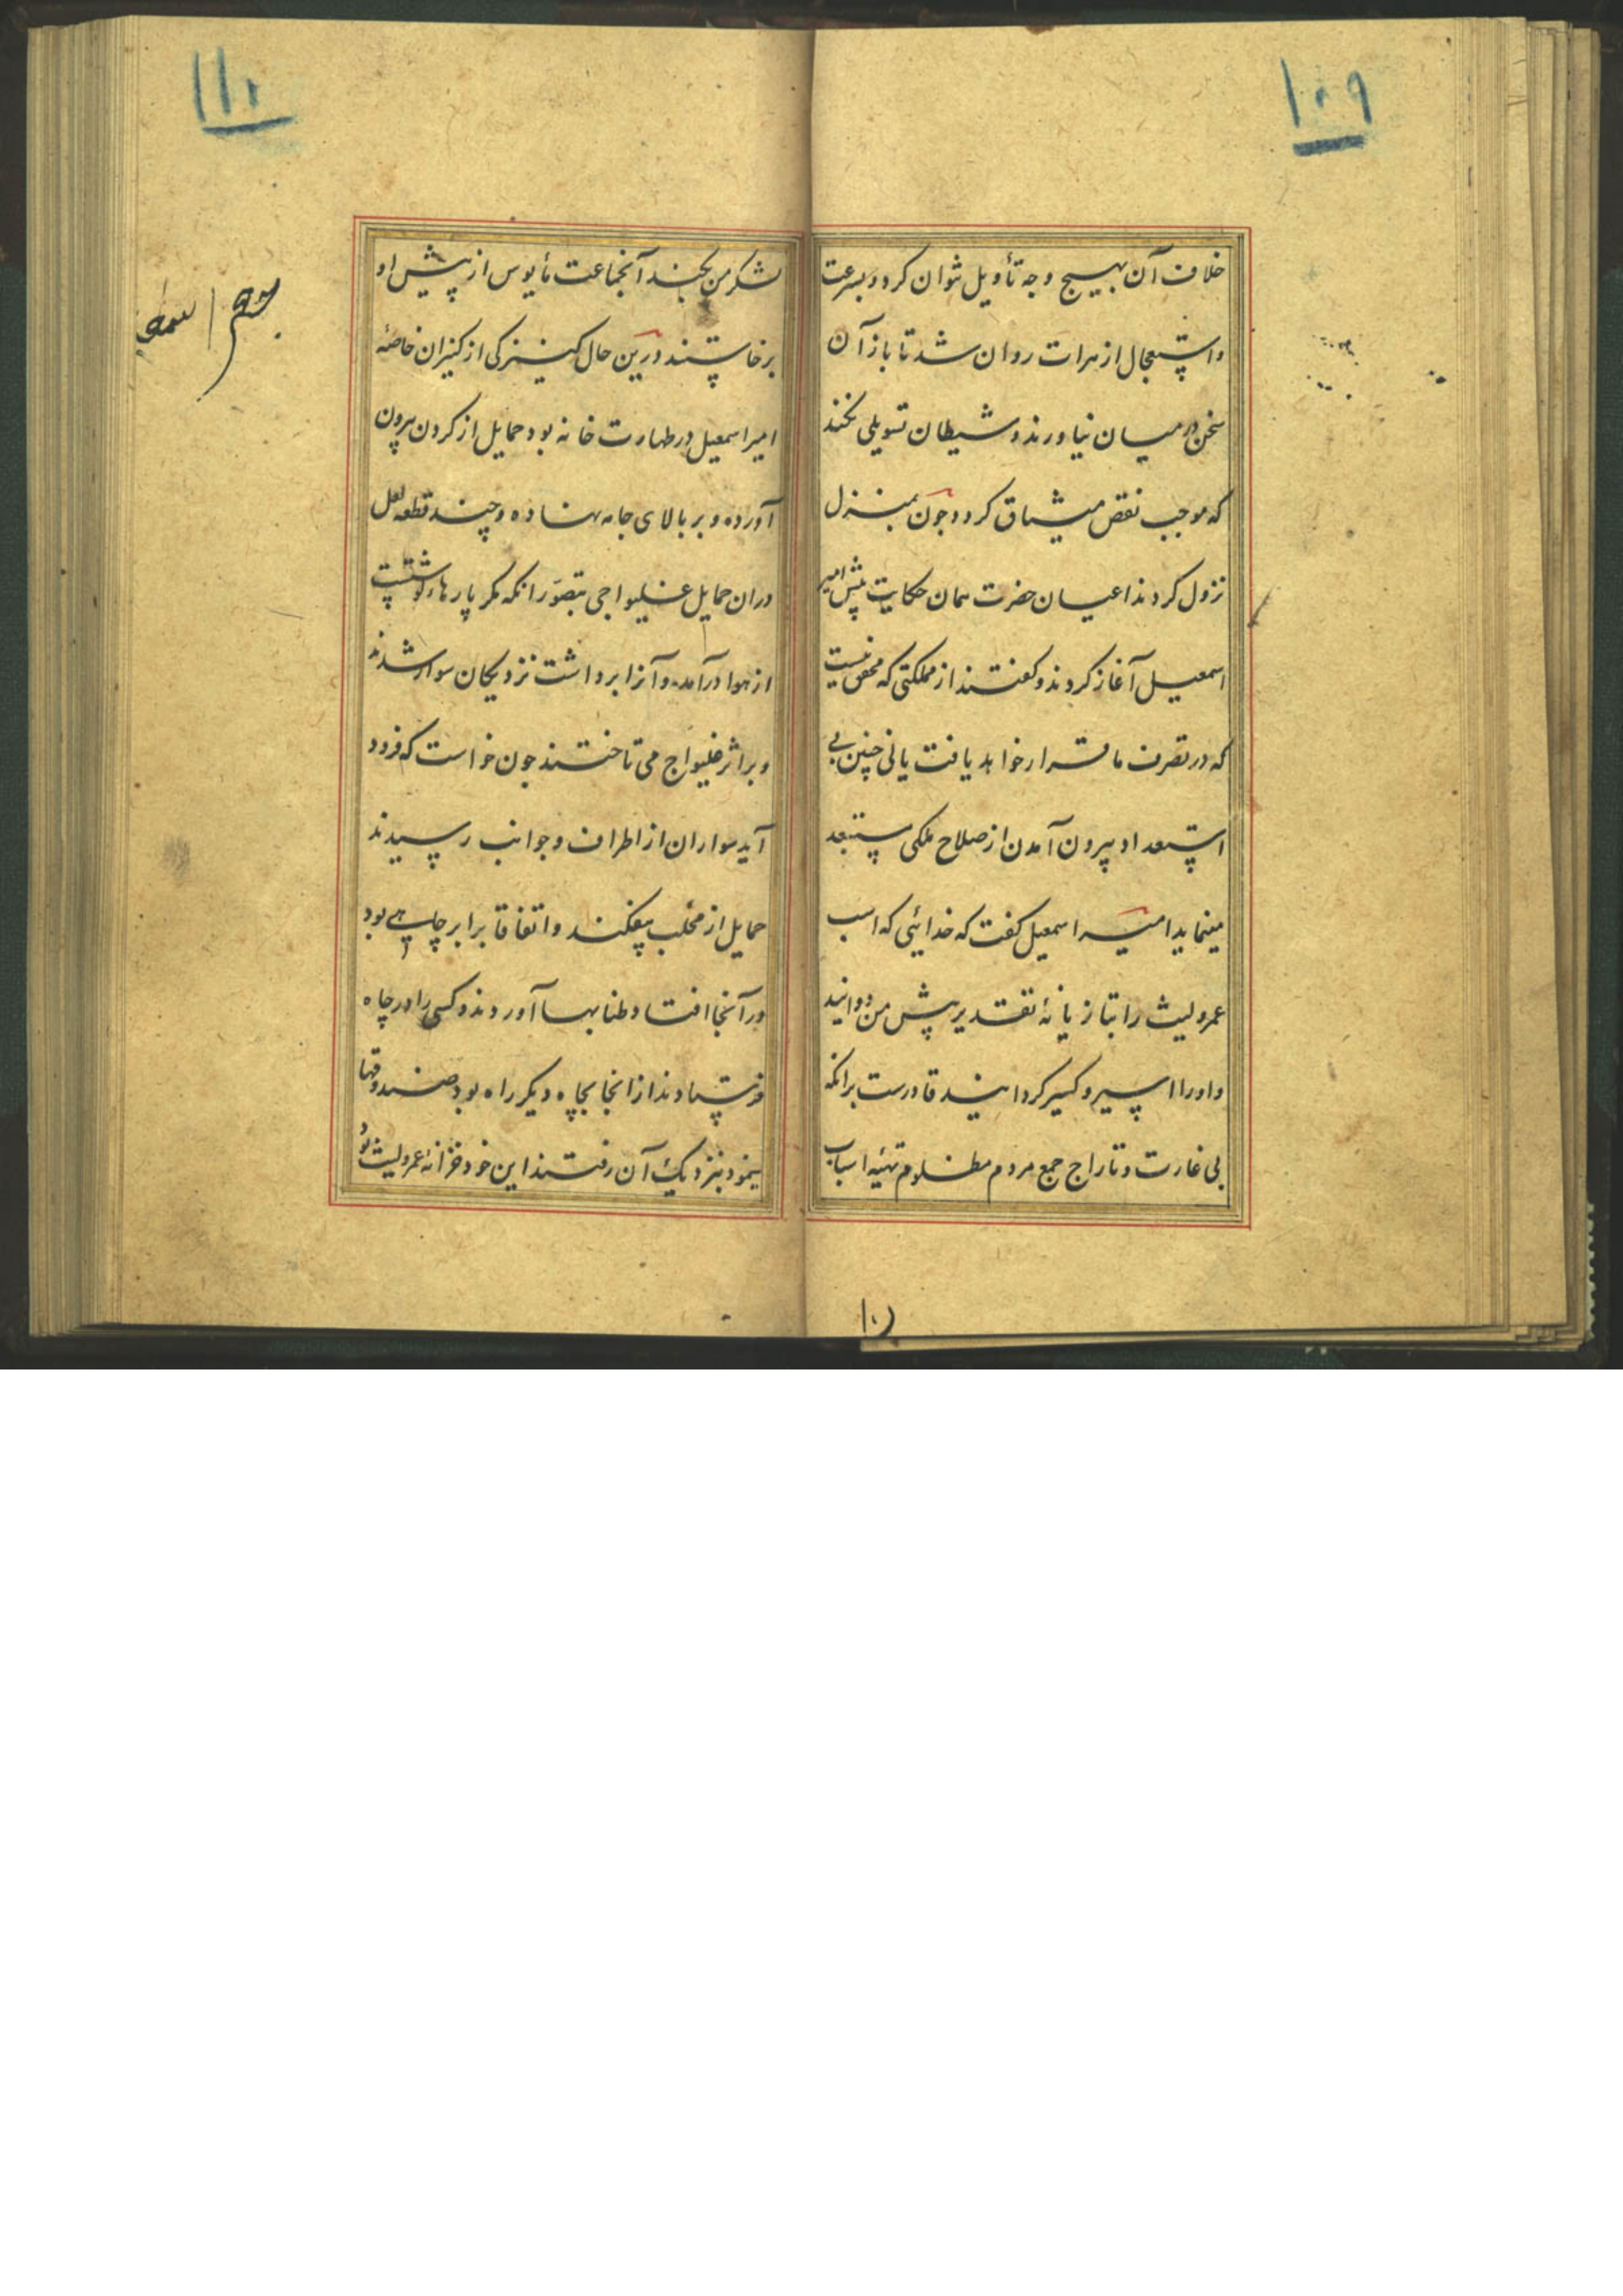 ۱۰۹
خلاف آن بهیچ وجه تأویل نتوان کرد و بسرعت
و استعجال از هرات روان شد تا باز آن
سخن در میان نیاورند و شیطان تسویلی نکند
که موجب نقص میثاق کردد و چون بمنزل
نزول کردند اعیان حضرت همان حکایت پیش امیر
اسمعیل آغاز کردند و کفتند از مملکتی که محقق نیست
که در تصرف ما قرار خواهد یافت یا نی چنین بی
استعداد بیرون آمدن از صلاح ملکی مستبعد
مینماید امیر اسمعیل کفت که خدائی که اسب
عمرولیث را بتازیانهٔ تقدیر پیش من دوانید
و او را اسیر و کسیر کردانید قادرست برانکه
بی غارت و تاراج جمع مردم مظلوم تهیهٔ اسباب
۱۰
۱۱۰
لشکر من بکند آنجماعت مأیوس از پیش او
برخاستند درین حال کنیزکی از کنیزان خاصهٔ
امیر اسمعیل در طهارت خانه بود حمایل از کردن بیرون
آورده و بر بالای جامه نهاده و چند قطعه لعل
دران حمایل غلیواجی بتصور انکه مکر پارهاء کوشتست
از هوا درآمد و آنرا برداشت نزدیکان سوار شدند
و بر اثر غلیواج می تاختند چون خواست که فرود
آید سواران از اطراف و جوانب رسیدند
حمایل از مخلب بیفکند و اتفاقا برابر چاهی بود
در آنجا افتاد طنابها آوردند و کسی را در چاه
فرستادند از انجا بچاه دیکر راه بود صندوقها
بنمود بنزدیک آن رفتند این خود خزانهٔ عمرولیث بود